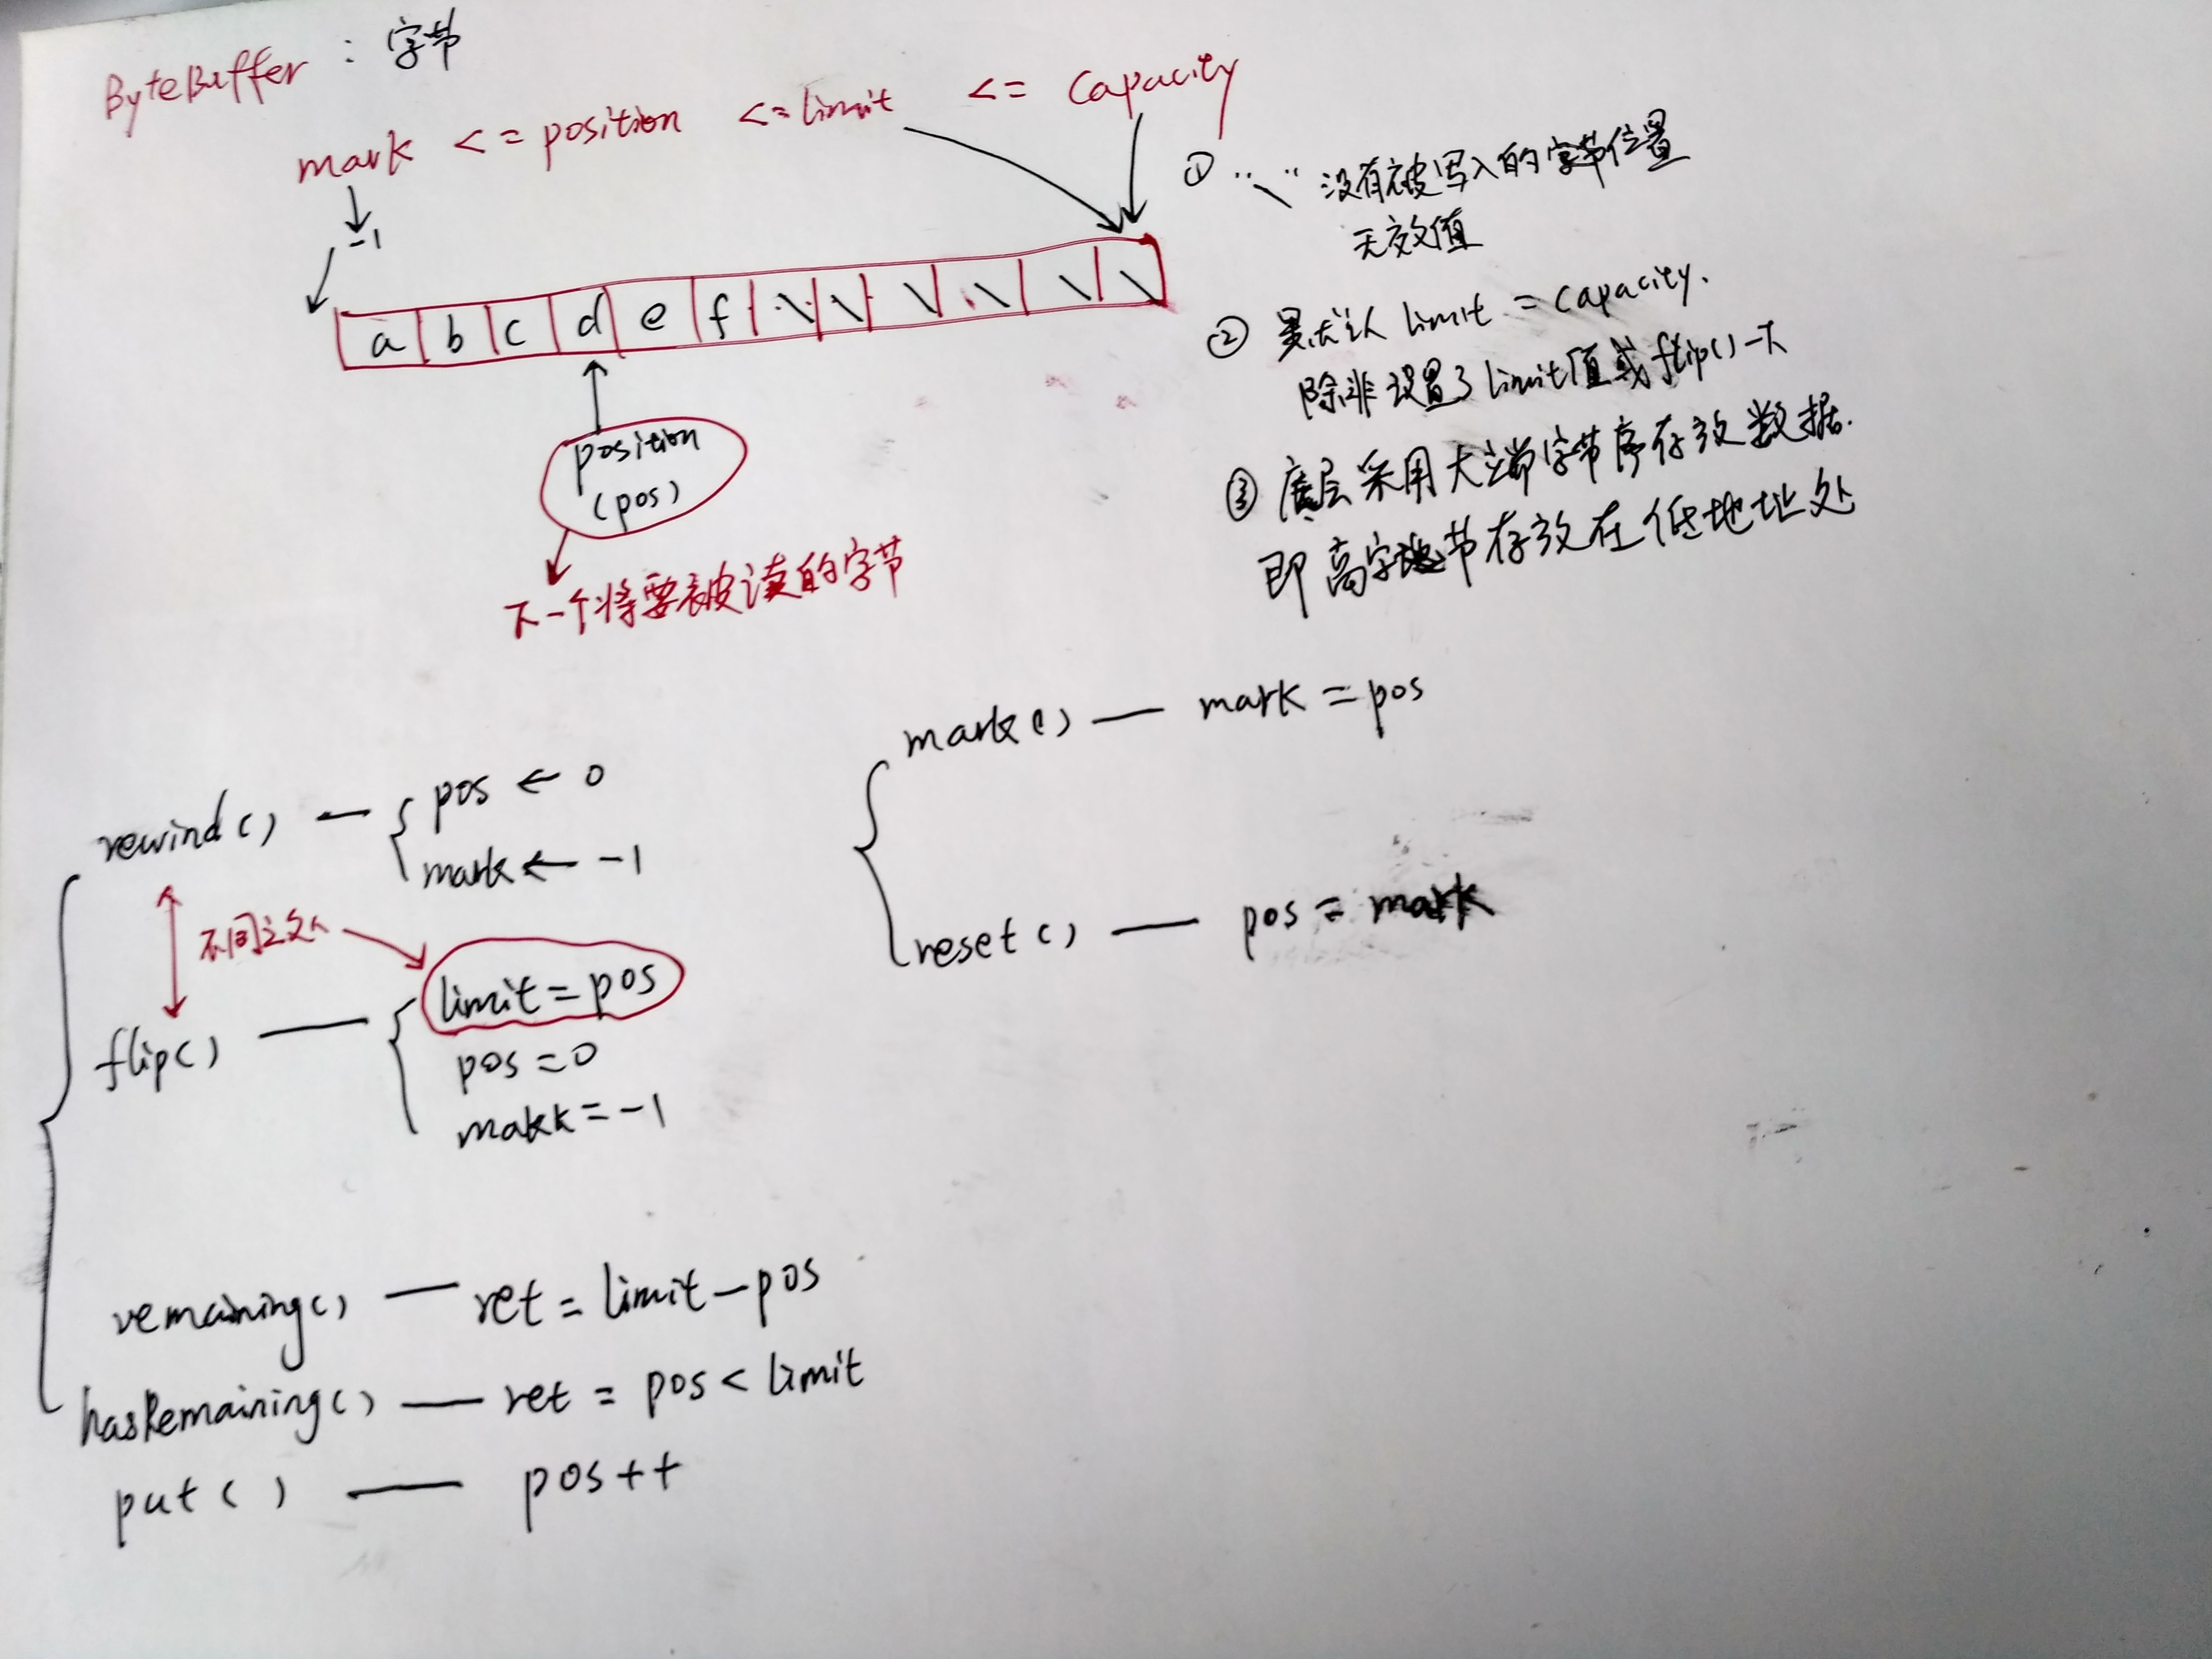 ByteBuffer : 字节
mark <= position <= limit <= Capacity
-1
a b c d e f \ \ \ \ \ \
position
(pos)
下一个将要被读的字节
① "\" 没有被写入的字节位置
无效值
② 默认 limit = capacity.
除非设置了limit值或flip()一下
③ 底层采用大端字节序存放数据.
即高字节存放在低地址处
rewind() — pos ← 0
mark ← -1
不同之处
flip() — limit = pos
pos = 0
mark = -1
remaining() — ret = limit - pos
hasRemaining() — ret = pos < limit
put() — pos++
mark() — mark = pos
reset() — pos = mark